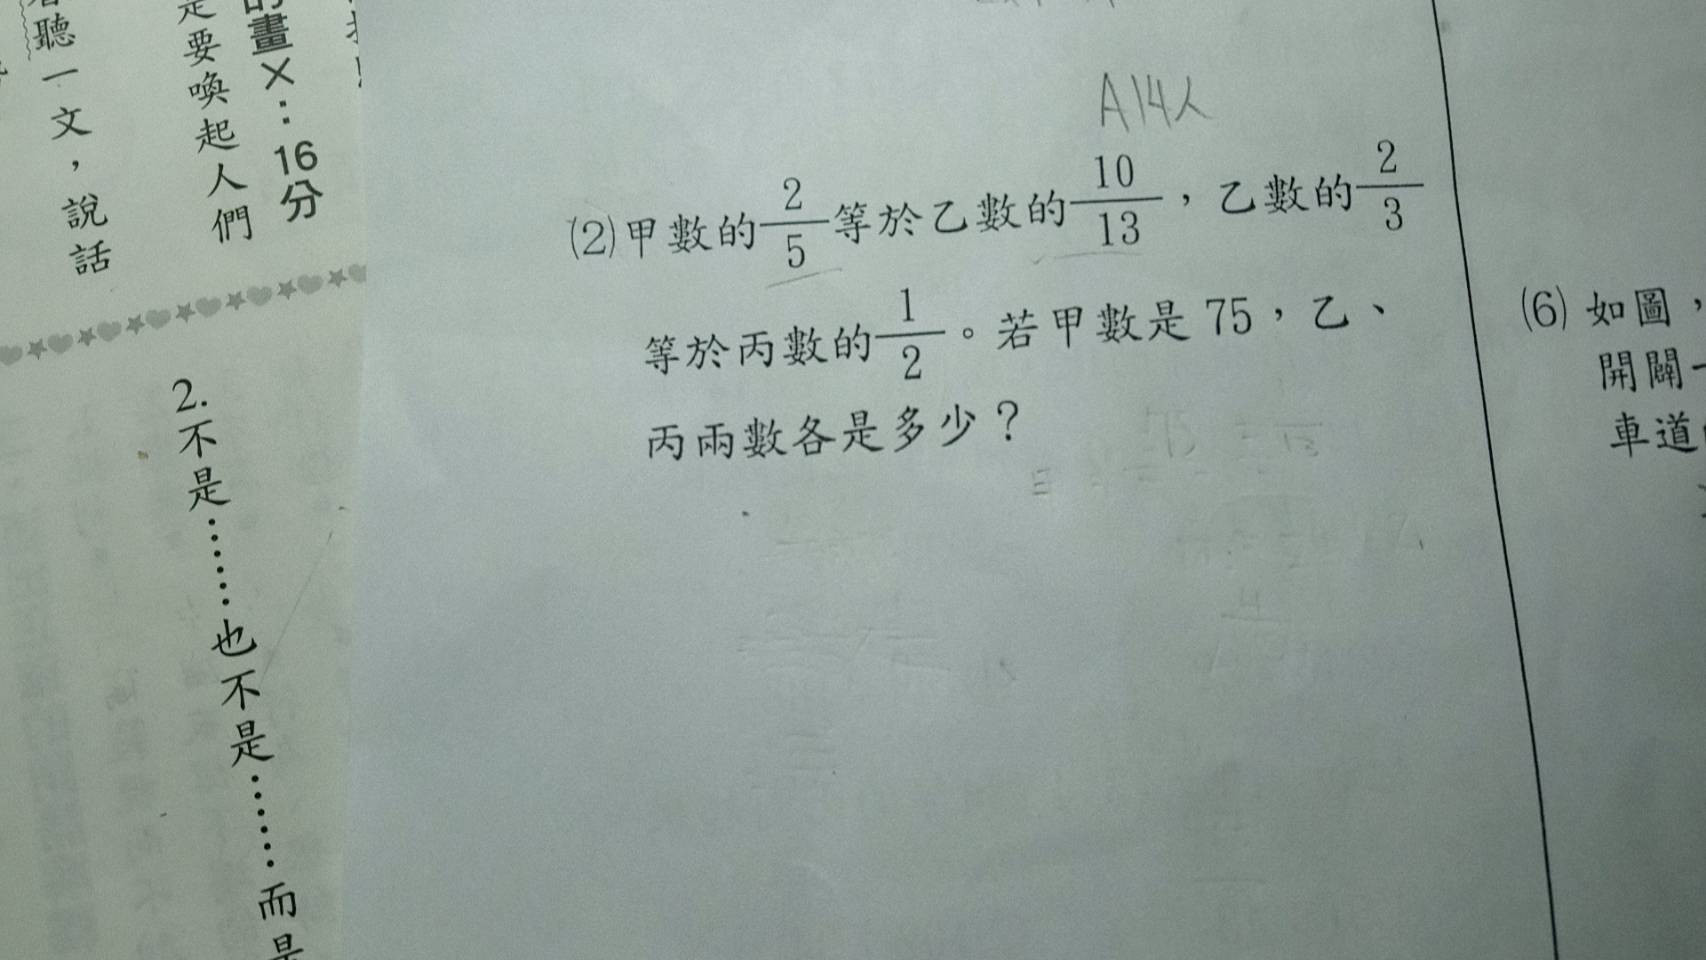 A 14人
(2)甲數的2/5等於乙數的10/13，乙數的2/3
等於丙數的1/2。若甲數是75，乙、
丙兩數各是多少？
(6) 如圖，
開闢一
車道
的畫×：16分
是要喚起人們
聽一文，說話
2.不是……也不是……而是